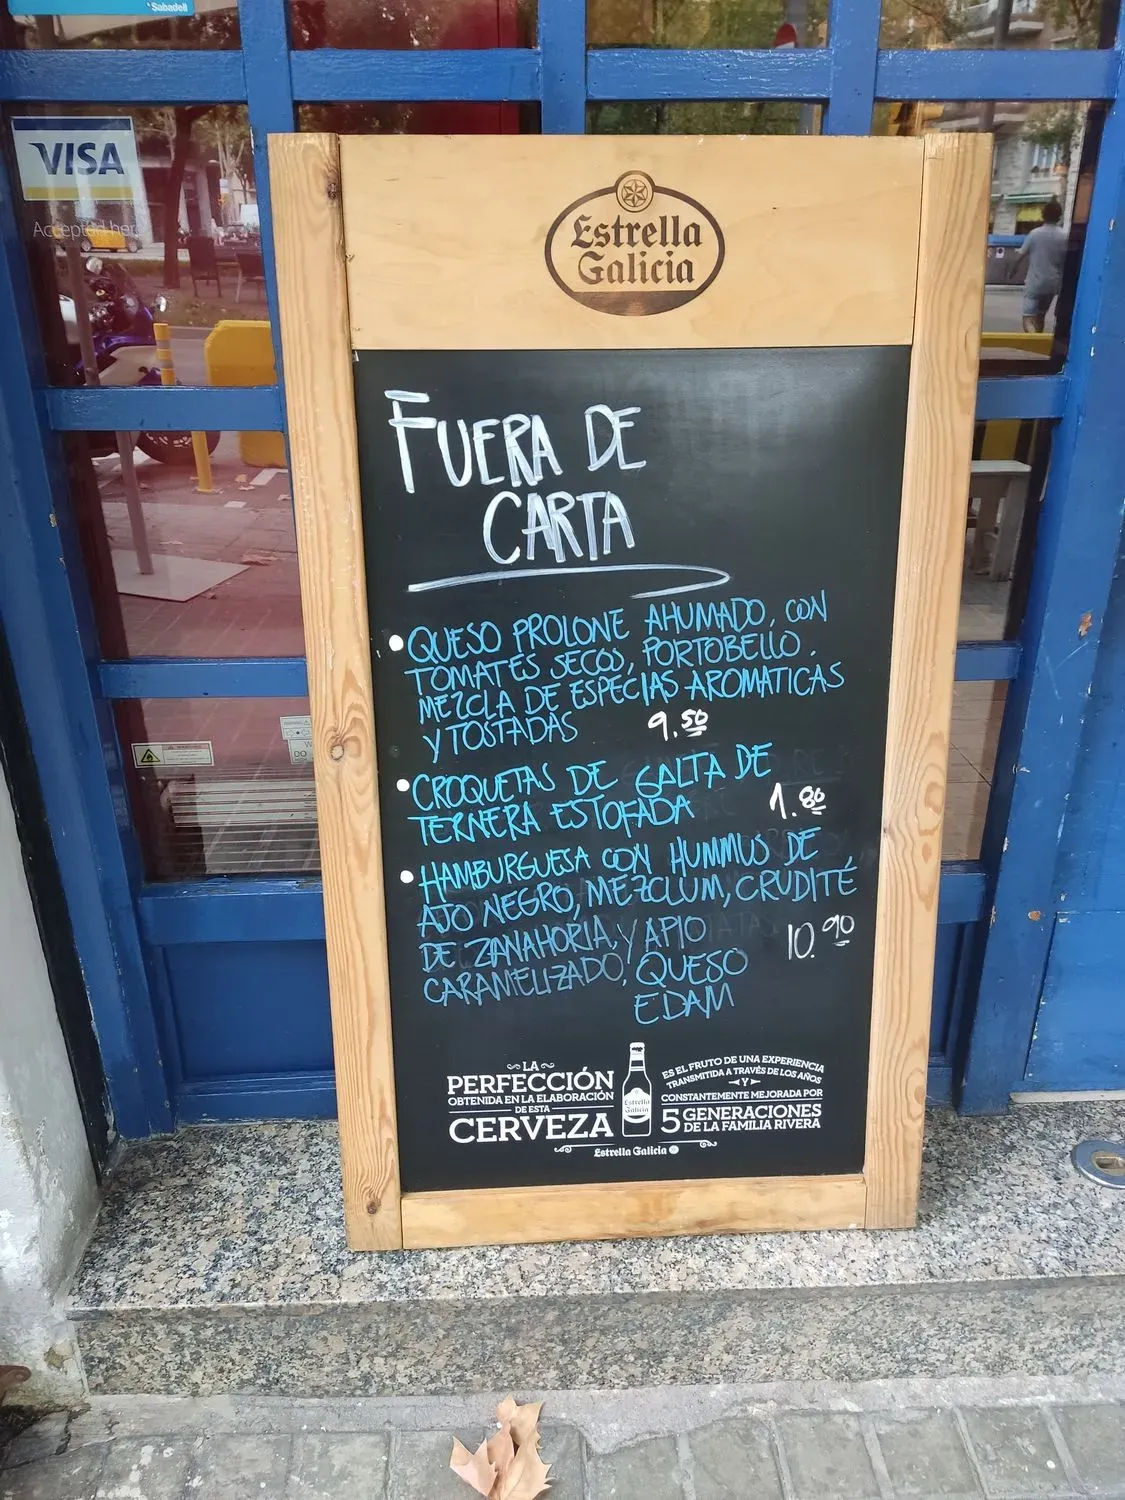 Sabadell
VISA
Accepted here
Estrella
Galicia
FUERA DE
CARTA
QUESO PROLONE AHUMADO, CON
TOMATES SECOS, PORTOBELLO.
MEZCLA DE ESPECIAS AROMATICAS
Y TOSTADAS 9.50
CROQUETAS DE GALTA DE
TERNERA ESTOFADA 1.80
HAMBURGUESA CON HUMMUS DE
AJO NEGRO, MEZCLUM, CRUDITÉ
DE ZANAHORIA, Y APIO 10.90
CARAMELIZADO, QUESO
EDAM
LA
PERFECCIÓN
OBTENIDA EN LA ELABORACIÓN
DE ESTA
CERVEZA
Estrella
Galicia
ES EL FRUTO DE UNA EXPERIENCIA
TRANSMITIDA A TRAVÉS DE LOS AÑOS
Y
CONSTANTEMENTE MEJORADA POR
5 GENERACIONES
DE LA FAMILIA RIVERA
Estrella Galicia